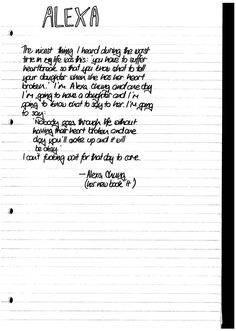 ALEXA
The nicest thing I heard during the worst
time in my life was this: you have to suffer
heartbreak so that you know what to tell
your daughter when she has her heart
broken." I'm Alexa Chung and one day
I'm going to have a daughter and I'm
going to know what to say to her. I'm going
to say:
"Nobody goes through life without
having their heart broken and one
day you'll wake up and it will
be okay."
I can't fucking wait for that day to come.
— Alexa Chung
(her new book "It")